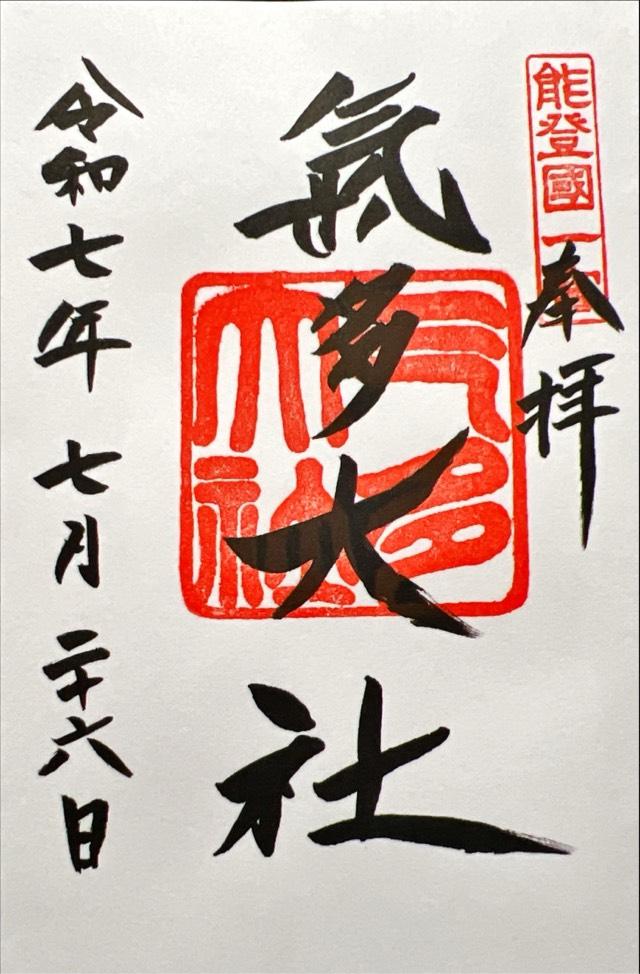 能登國一宮
奉拝
氣多大社
气多大社
令和七年 七月 二十六日